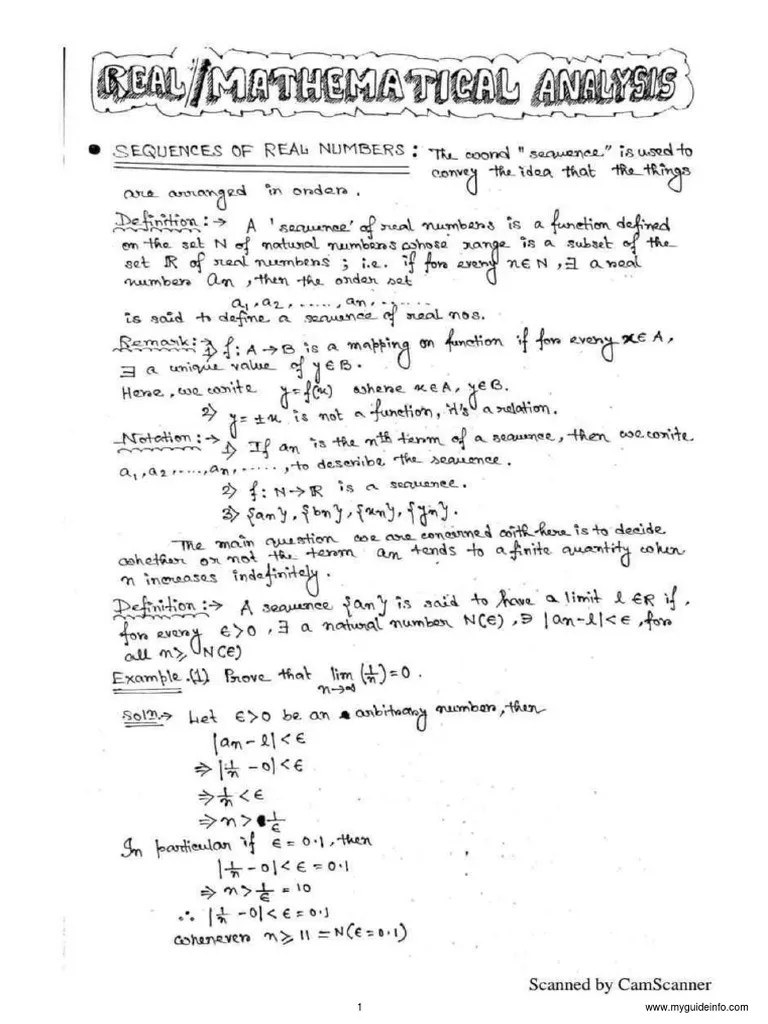 REAL/MATHEMATICAL ANALYSIS
• SEQUENCES OF REAL NUMBERS : The word "sequence" is used to
convey the idea that the things
are arranged in order.
Definition :→ A 'sequence' of real numbers is a function defined
on the set N of natural numbers whose range is a subset of the
set ℝ of real numbers ; i.e. if for every n∈N , ∃ a real
number an , then the order set
a₁, a₂, ....., an, .. .....
is said to define a sequence of real nos.
Remark :→ 1) f: A→B is a mapping on function if for every x∈A,
∃ a unique value of y∈B.
Here, we write y=f(x) where x∈A, y∈B.
2) y = ±x is not a function, it's a relation.
Notation :→ 1) If an is the nth term of a sequence, then we write
a₁, a₂, ...., an, ....., to describe the sequence.
2) f: N→ℝ is a sequence.
3) {an}, {bn}, {xn}, {yn}.
The main question we are concerned with here is to decide
whether or not the term an tends to a finite quantity when
n increases indefinitely.
Definition :→ A sequence {an} is said to have a limit l ∈R if,
for every ∈>0 , ∃ a natural number N(∈), ∋ |an-l|<∈, for
all n⩾ N(∈)
Example.(1) Prove that lim n→∞ (1/n)=0 .
Soln.→ Let ∈>0 be an arbitrary number, then
|an-l|<∈
⇒ |1/n -0|<∈
⇒ 1/n <∈
⇒ n> 1/∈
In particular if ∈ = 0.1, then
|1/n -0|<∈ = 0.1
⇒ n> 1/∈ = 10
∴ |1/n -0|<∈ = 0.1
whenever n⩾ 11 = N(∈ = 0.1)
Scanned by CamScanner
1
www.myguideinfo.com